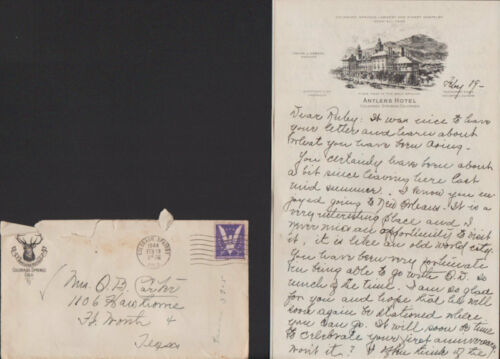 COLORADO SPRINGS LARGEST AND FINEST HOSTELRY
ANTLERS HOTEL
COLORADO SPRINGS, COLORADO
Feby 19-
Dear Ruby: It was nice to have
your letter and learn about
what you have been doing.
You certainly have been about
a bit since leaving here last
mid summer. I know you en-
joyed going to New Orleans. It is a
very interesting place and I
never miss an opportunities to visit
it, it is like an old world city.
You have been very fortunate
in being able to go with O.D. so
much of the time. I am so glad
for you and hope that he will
soon again be stationed where
you can go. It will soon be time
to celebrate your first anniversary
won't it? I often think of the
COLORADO SPRINGS
COLO.
COLORADO SPRINGS
FEB 19
Mrs. O. D.
1106 Hawthorne
Ft. Worth 4
Texas